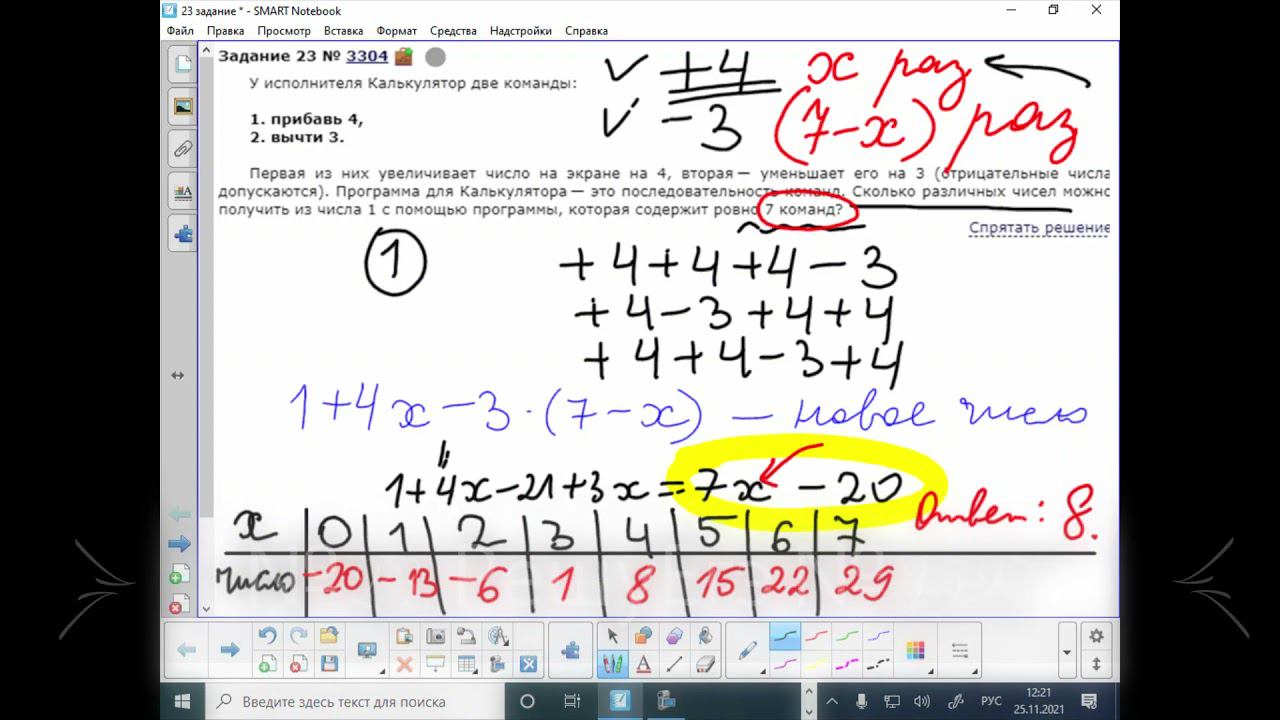 23 задание * - SMART Notebook
Файл Правка Просмотр Вставка Формат Средства Надстройки Справка
Задание 23 № 3304
У исполнителя Калькулятор две команды:
1. прибавь 4,
2. вычти 3.
+4 x раз
-3 (7-x) раз
Первая из них увеличивает число на экране на 4, вторая — уменьшает его на 3 (отрицательные числа
допускаются). Программа для Калькулятора — это последовательность команд. Сколько различных чисел можно
получить из числа 1 с помощью программы, которая содержит ровно 7 команд?
Спрятать решение
1
+4+4+4-3
+4-3+4+4
+4+4-3+4
1+4x-3·(7-x) - новое число
1+4x-21+3x=7x-20
Ответ: 8.
x 0 1 2 3 4 5 6 7
число -20 -13 -6 1 8 15 22 29
Введите здесь текст для поиска
РУС
12:21
25.11.2021